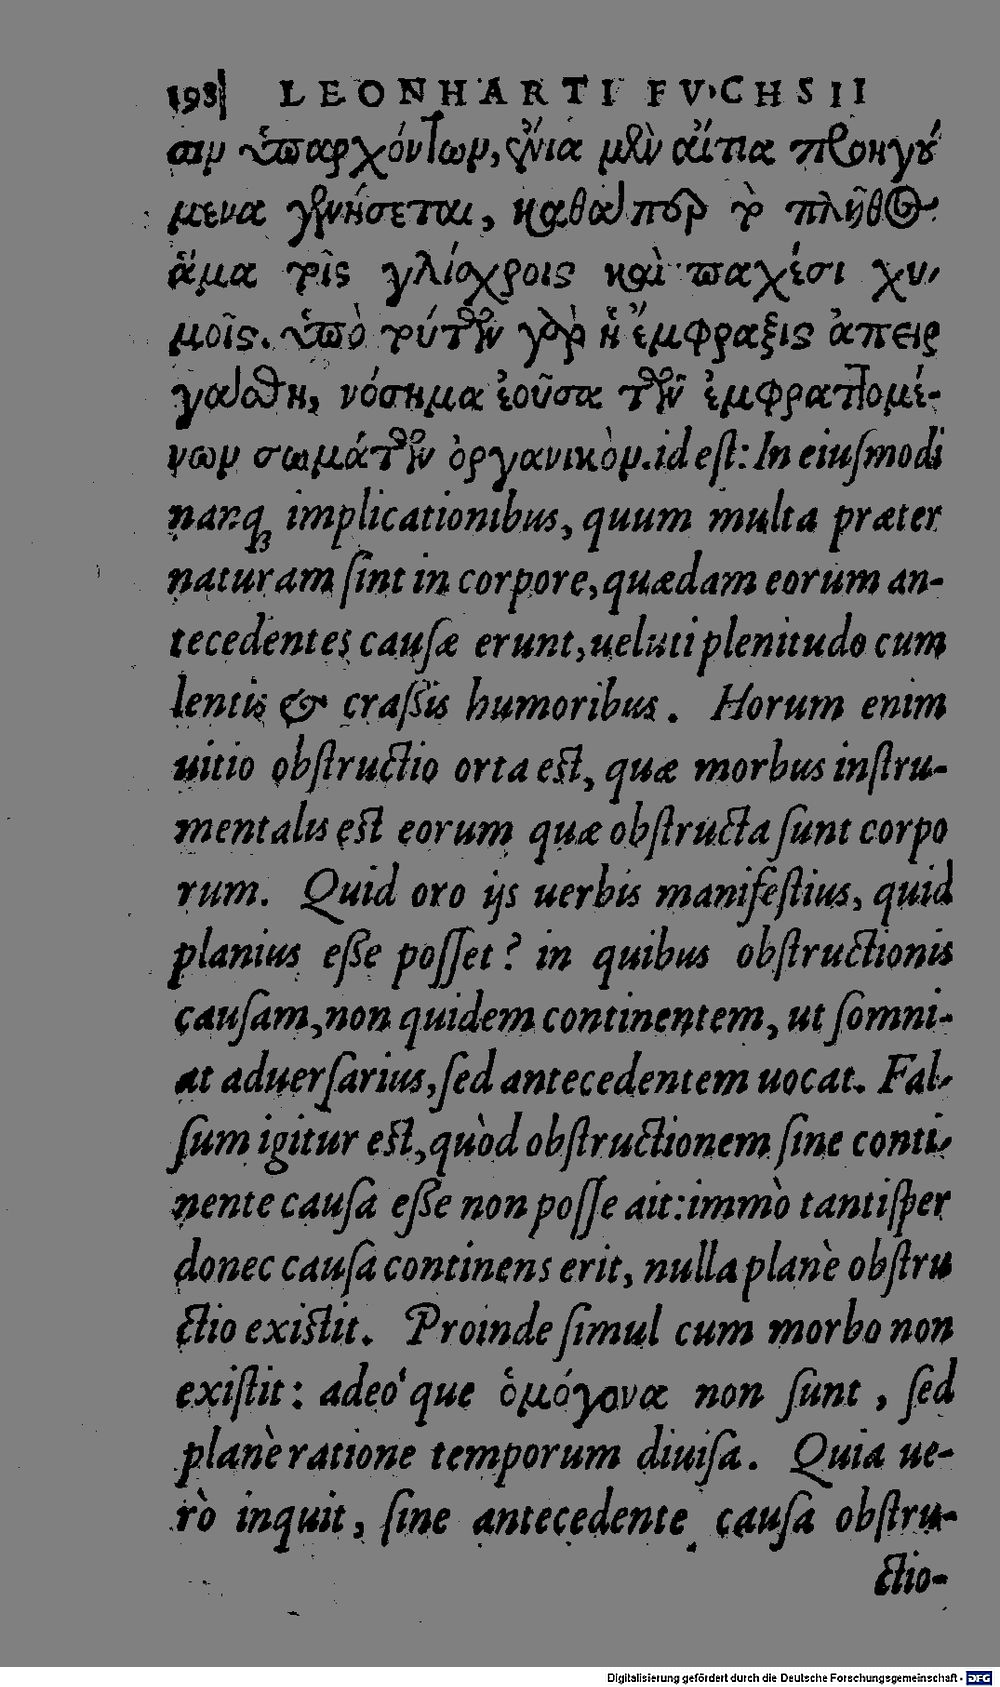 198 LEONHARTI FVCHSII
σιν ὑπαρχόντων, ἔνια μὲν αἴτια προηγού
μενα γενήσεται, καθάπερ τὸ πλῆθος
ἅμα τοῖς γλίσχροις καὶ παχέσι χυ-
μοῖς. ὑπὸ τούτων γὰρ ἡ ἔμφραξις ἀπειρ
γάσθη, νόσημα ἐοῦσα τῶν ἐμφραττομέ-
νων σωμάτων ὀργανικὸν. id eſt: In eiuſmodi
nanq; implicationibus, quum multa præter
naturam ſint in corpore, quædam eorum an-
tecedentes cauſæ erunt, ueluti plenitudo cum
lentis & craſsis humoribus. Horum enim
uitio obſtructio orta eſt, quæ morbus inſtru-
mentalis eſt eorum quæ obſtructa ſunt corpo
rum. Quid oro ijs uerbis manifeſtius, quid
planius eſſe poſſet? in quibus obſtructionis
cauſam, non quidem continentem, ut ſomni-
at aduerſarius, ſed antecedentem uocat. Fal-
ſum igitur eſt, quòd obſtructionem ſine conti-
nente cauſa eſſe non poſſe ait: immò tantiſper
donec cauſa continens erit, nulla planè obſtru
ctio exiſtit. Proinde ſimul cum morbo non
exiſtit: adeo'que ὁμόγονα non ſunt, ſed
planè ratione temporum diuiſa. Quia ue-
rò inquit, ſine antecedente cauſa obſtru-
ctio-
Digitalisierung gefördert durch die Deutsche Forschungsgemeinschaft - DFG